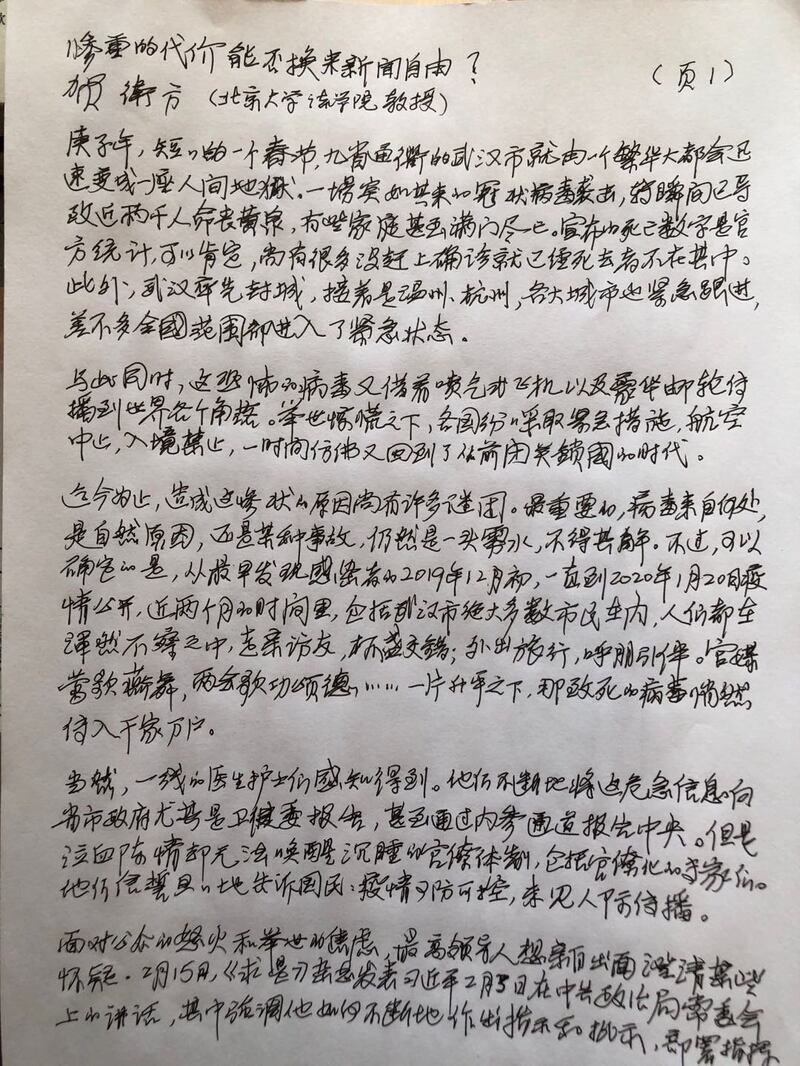 惨重的代价能否换来新闻自由？
（页1）
贺衛方（北京大学法学院教授）
庚子年，短短的一个春节，九省通衢的武汉市就由一个繁华大都会迅
速变成一座人间地狱。一場突如其来的冠状病毒袭击，转瞬间已导
致近两千人命丧黄泉，有些家庭甚至满门尽亡。宣布的死亡数字是官
方统计，可以肯定，尚有很多没赶上确诊就已经死去者不在其中。
此外，武汉率先封城，接着是温州、杭州，各大城市也紧急跟进，
差不多全國范围都进入了紧急状态。
与此同时，这恐怖的病毒又借着喷气式飞机以及豪华邮轮传
播到世界各个角落。举世惊慌之下，各国纷纷采取紧急措施，航空
中止，入境禁止，一时间仿佛又回到了从前闭关鎖國的时代。
迄今为止，造成这惨状的原因尚有许多谜团。最重要的，病毒来自何处，
是自然原因，还是某种事故，仍然是一头雾水，不得其解。不过，可以
确定的是，从最早发现感染者的2019年12月初，一直到2020年1月20日疫
情公开，近两个月的时间里，包括武汉市绝大多数市民在内，人们都在
浑然不察之中，走亲访友，杯盏交錯；外出旅行，呼朋引伴。官媒
莺歌燕舞，两会歌功颂德……一片升平之下，那致死的病毒悄然
传入千家万户。
当然，一线的医生护士们感知得到。他们不断地将这危急信息向
省市政府尤其是卫健委报告，甚至通过内参通道报告中央。但是
泣血陈情却无法唤醒沉睡的官僚体制，包括官僚化的专家们。
他们信誓旦旦地告诉国民：疫情可防可控，未见人际传播。
面对公众的怒火和举世的焦虑，最高领导人想亲自出面澄清某些
怀疑。2月15日，《求是》杂志发表习近平2月3日在中共政治局常委会
上的讲话，其中强调他如何不断地作出指示和批示，部署指挥